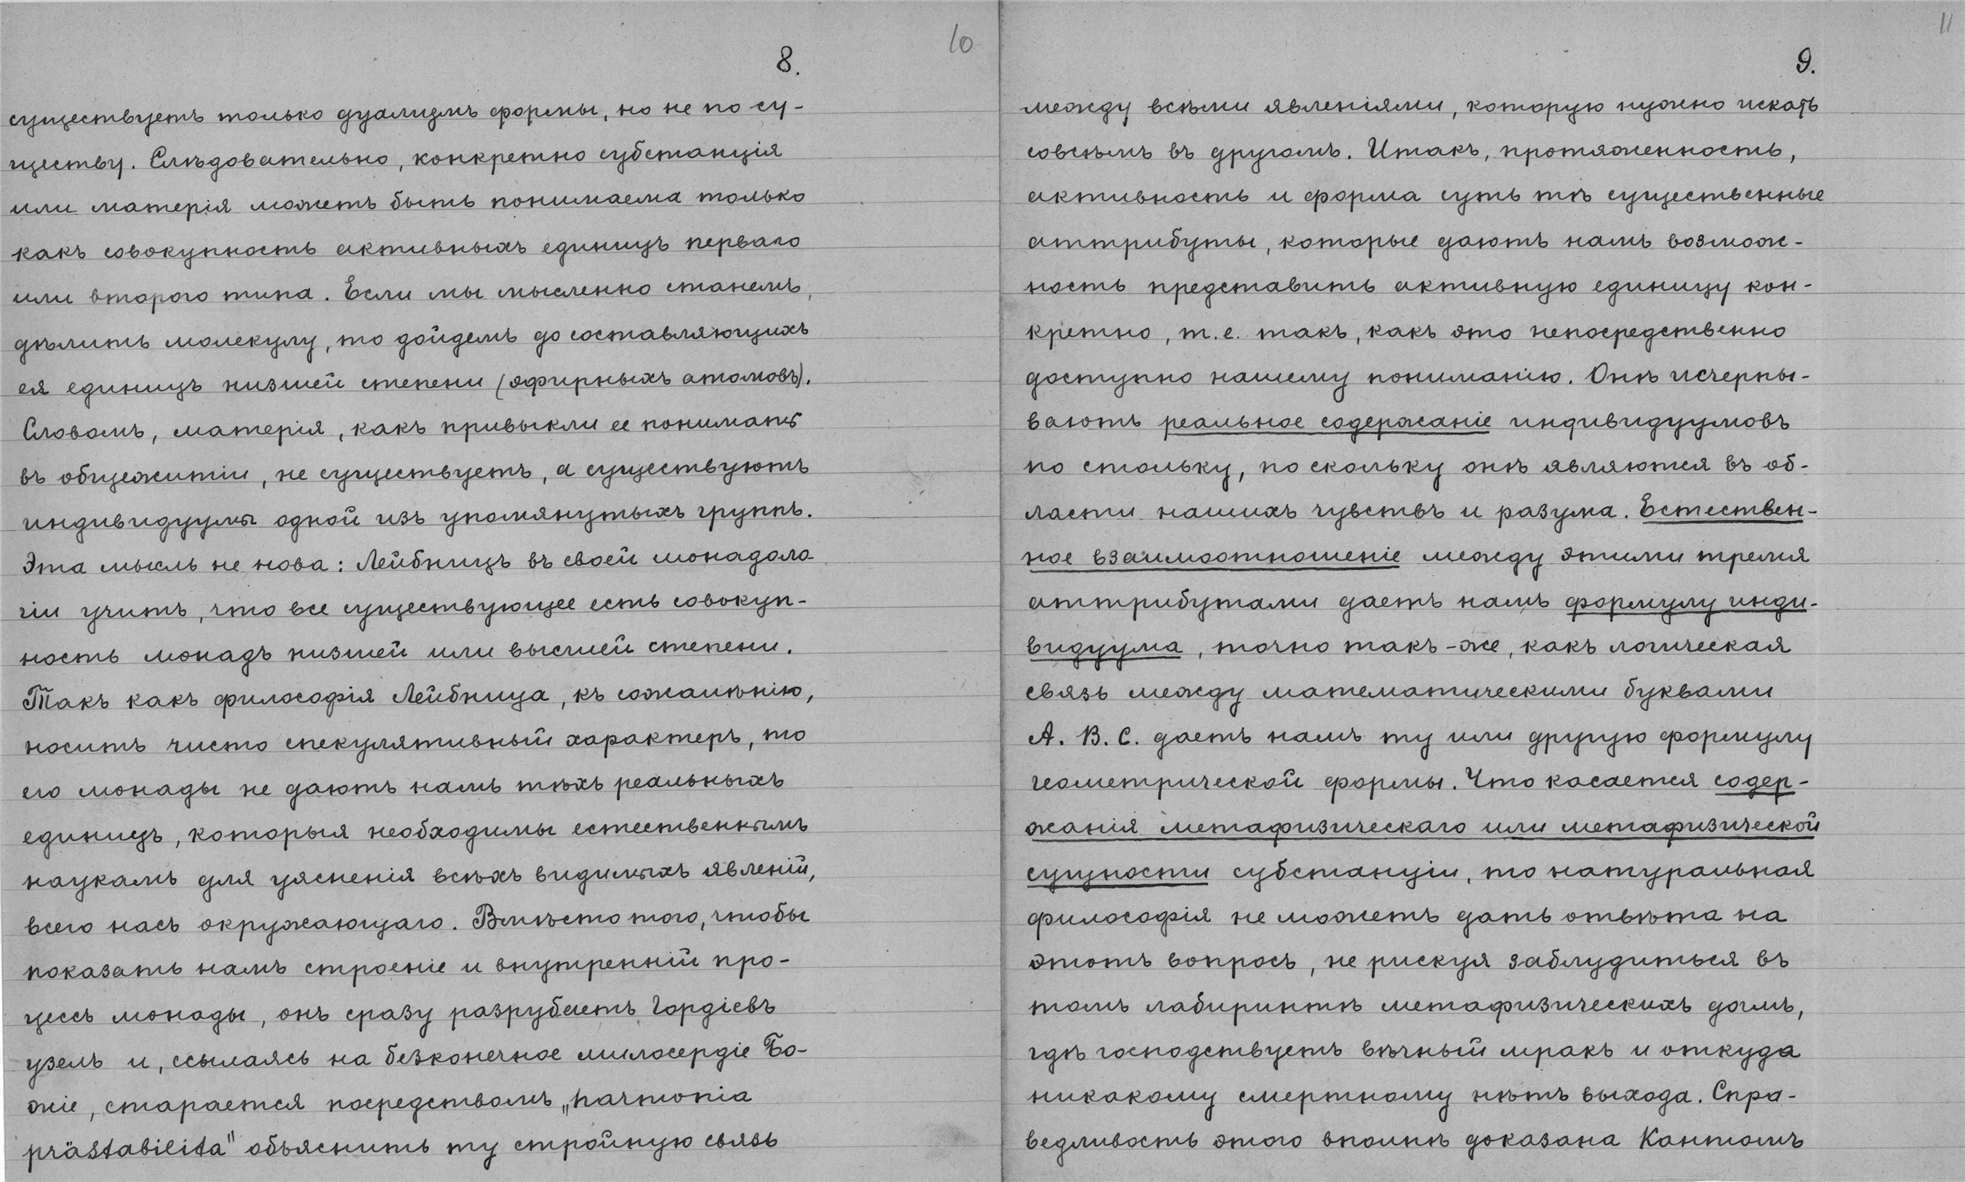 10
8.
существуетъ только дуализмъ формы, но не по су-
ществу. Слѣдовательно, конкретно субстанція
или матерія можетъ быть понимаема только
какъ совокупность активныхъ единицъ перваго
или второго типа. Если мы мысленно станемъ,
дѣлить молекулу, то дойдемъ до составляющихъ
ея единицъ низшей степени (эфирныхъ атомовъ).
Словомъ, матерія, какъ привыкли ее понимать
въ общежитіи, не существуетъ, а существуютъ
индивидуумы одной изъ упомянутыхъ группъ.
Эта мысль не нова: Лейбницъ въ своей монадоло
гіи учитъ, что все существующее есть совокуп-
ность монадъ низшей или высшей степени.
Такъ какъ философія Лейбница, къ сожалѣнію,
носитъ чисто спекулятивный характеръ, то
его монады не даютъ намъ тѣхъ реальныхъ
единицъ, которыя необходимы естественнымъ
наукамъ для уясненія всѣхъ видимыхъ явленій,
всего насъ окружающаго. Вмѣсто того, чтобы
показать намъ строеніе и внутренній про-
цессъ монады, онъ сразу разрубаетъ Гордіевъ
узелъ и, ссылаясь на безконечное милосердіе Бо-
жіе, старается посредствомъ „harmonia
prästabilita" объяснить ту стройную связь
11
9.
между всѣми явленіями, которую нужно искать
совсѣмъ въ другомъ. Итакъ, протяженность,
активность и форма суть тѣ существенные
аттрибуты, которые даютъ намъ возмож-
ность представить активную единицу кон-
кретно, т.е. такъ, какъ это непосредственно
доступно нашему пониманію. Онѣ исчерпы-
ваютъ реальное содержаніе индивидуумовъ
по стольку, по скольку онѣ являются въ об-
ласти нашихъ чувствъ и разума. Естествен-
ное взаимоотношеніе между этими тремя
аттрибутами даетъ намъ формулу инди-
видуума, точно такъ-же, какъ логическая
связь между математическими буквами
А. В. С. даетъ намъ ту или другую формулу
геометрической формы. Что касается содер-
жанія метафизическаго или метафизической
сущности субстанціи, то натуральная
философія не можетъ дать отвѣта на
этотъ вопросъ, не рискуя заблудиться въ
томъ лабиринтѣ метафизическихъ догмъ,
гдѣ господствуетъ вѣчный мракъ и откуда
никакому смертному нѣтъ выхода. Спра-
ведливость этого вполнѣ доказана Кантомъ